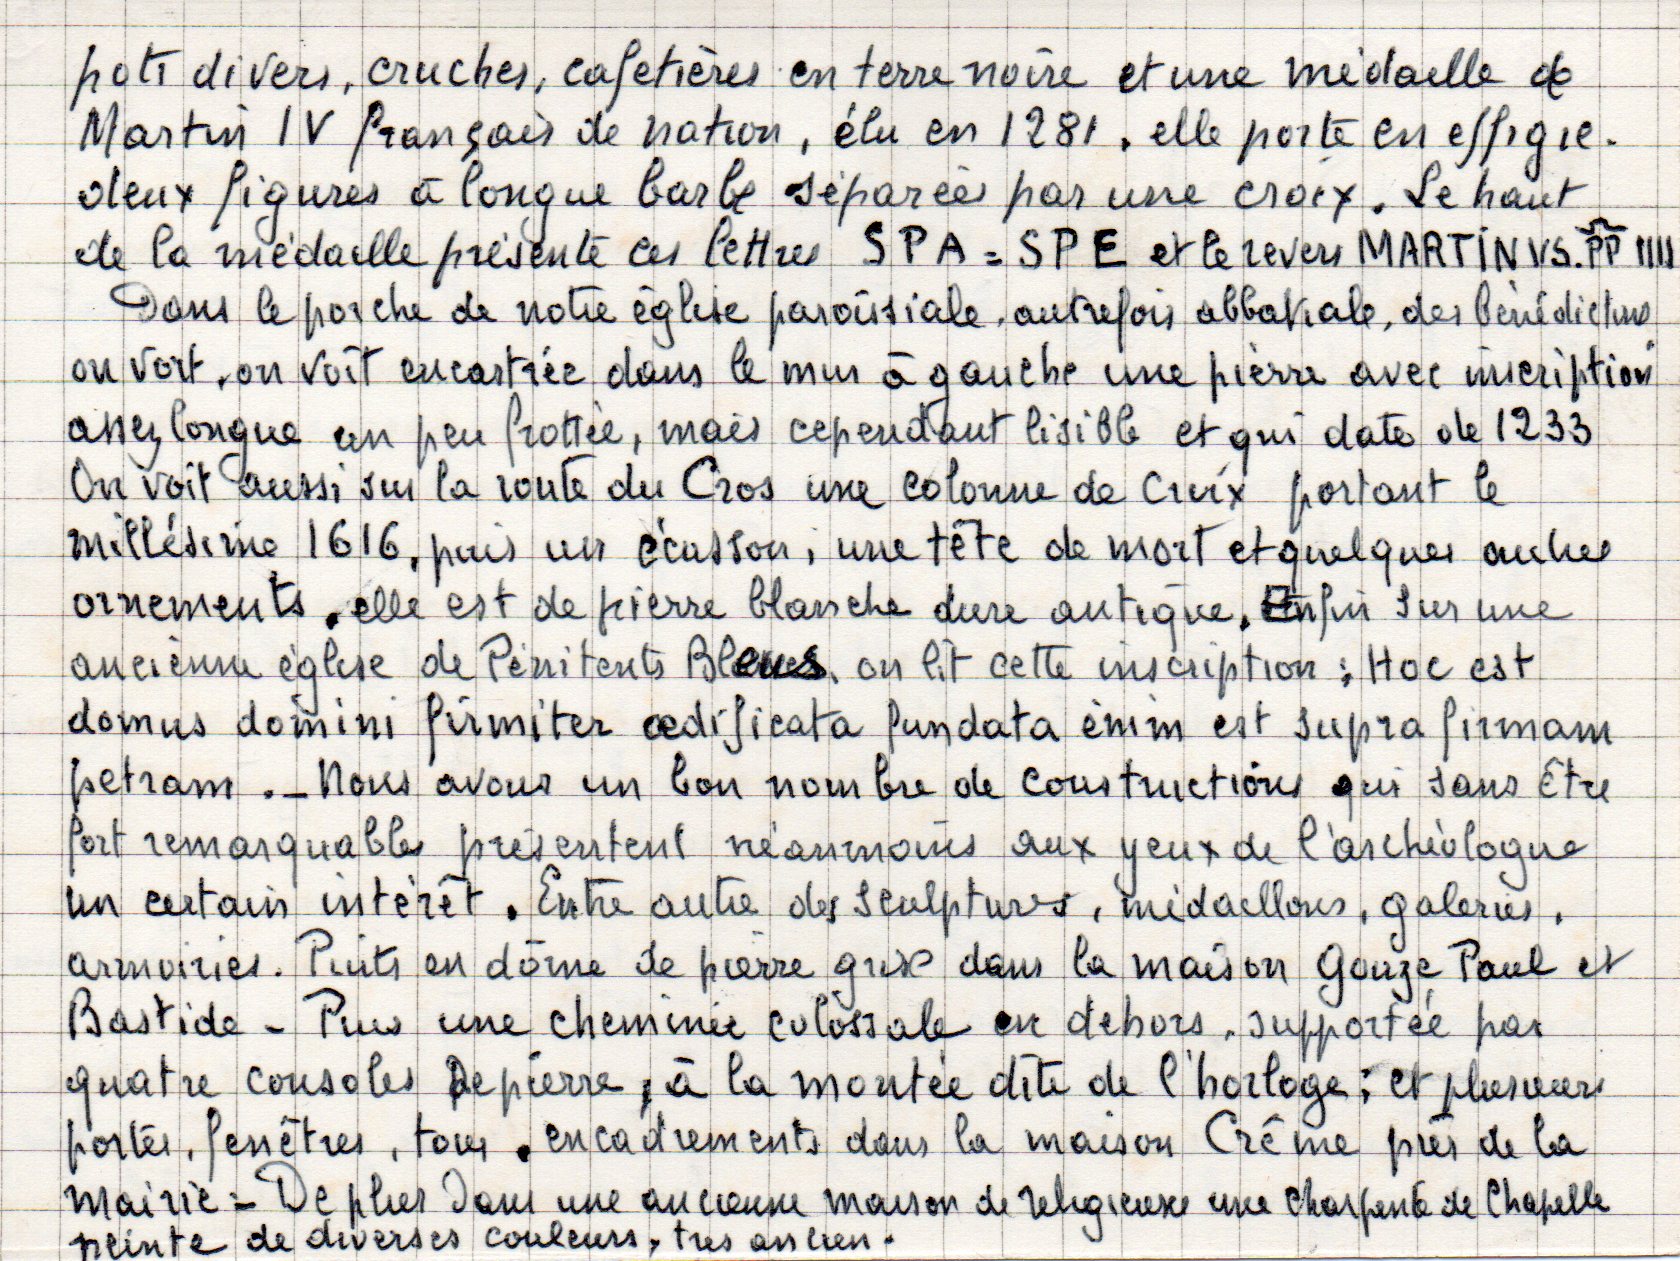 pots divers, cruches, cafetières en terre noire et une médaille de
Martin IV français de nation, élu en 1281. elle porte en effigie.
deux figures à longue barbe séparées par une croix. Le haut
de la médaille présente ces lettres SPA = SPE et le revers MARTINVS. PP IIII
Dans le porche de notre église paroissiale, autrefois abbatiale, des bénédictins
on voit, on voit encastrée dans le mur à gauche une pierre avec inscription
assez longue un peu frottée, mais cependant lisible et qui date de 1233
On voit aussi sur la route du Cros une colonne de Croix portant le
millésime 1616, puis un écusson, une tête de mort et quelques autres
ornements. elle est de pierre blanche dure antique. Enfin sur une
ancienne église de Pénitents Bleus, on lit cette inscription ; Hoc est
domus domini firmiter ædificata fundata enim est supra firmam
petram. _ Nous avons un bon nombre de constructions qui sans être
fort remarquables présentent néanmoins aux yeux de l'archéologue
un certain intérêt. Entre autre des sculptures, médaillons, galeries,
armoiries. Puits en dôme de pierre grise dans la maison Gouze Paul et
Bastide - Puis une cheminée colossale en dehors, supportée par
quatre consoles De pierre, à la montée dite de l'horloge ; et plusieurs
portes, fenêtres, tous. encadrements dans la maison Crême près de la
mairie = De plus Dans une ancienne maison de religieuse une Charpente de Chapelle
peinte de diverses couleurs, très ancien.